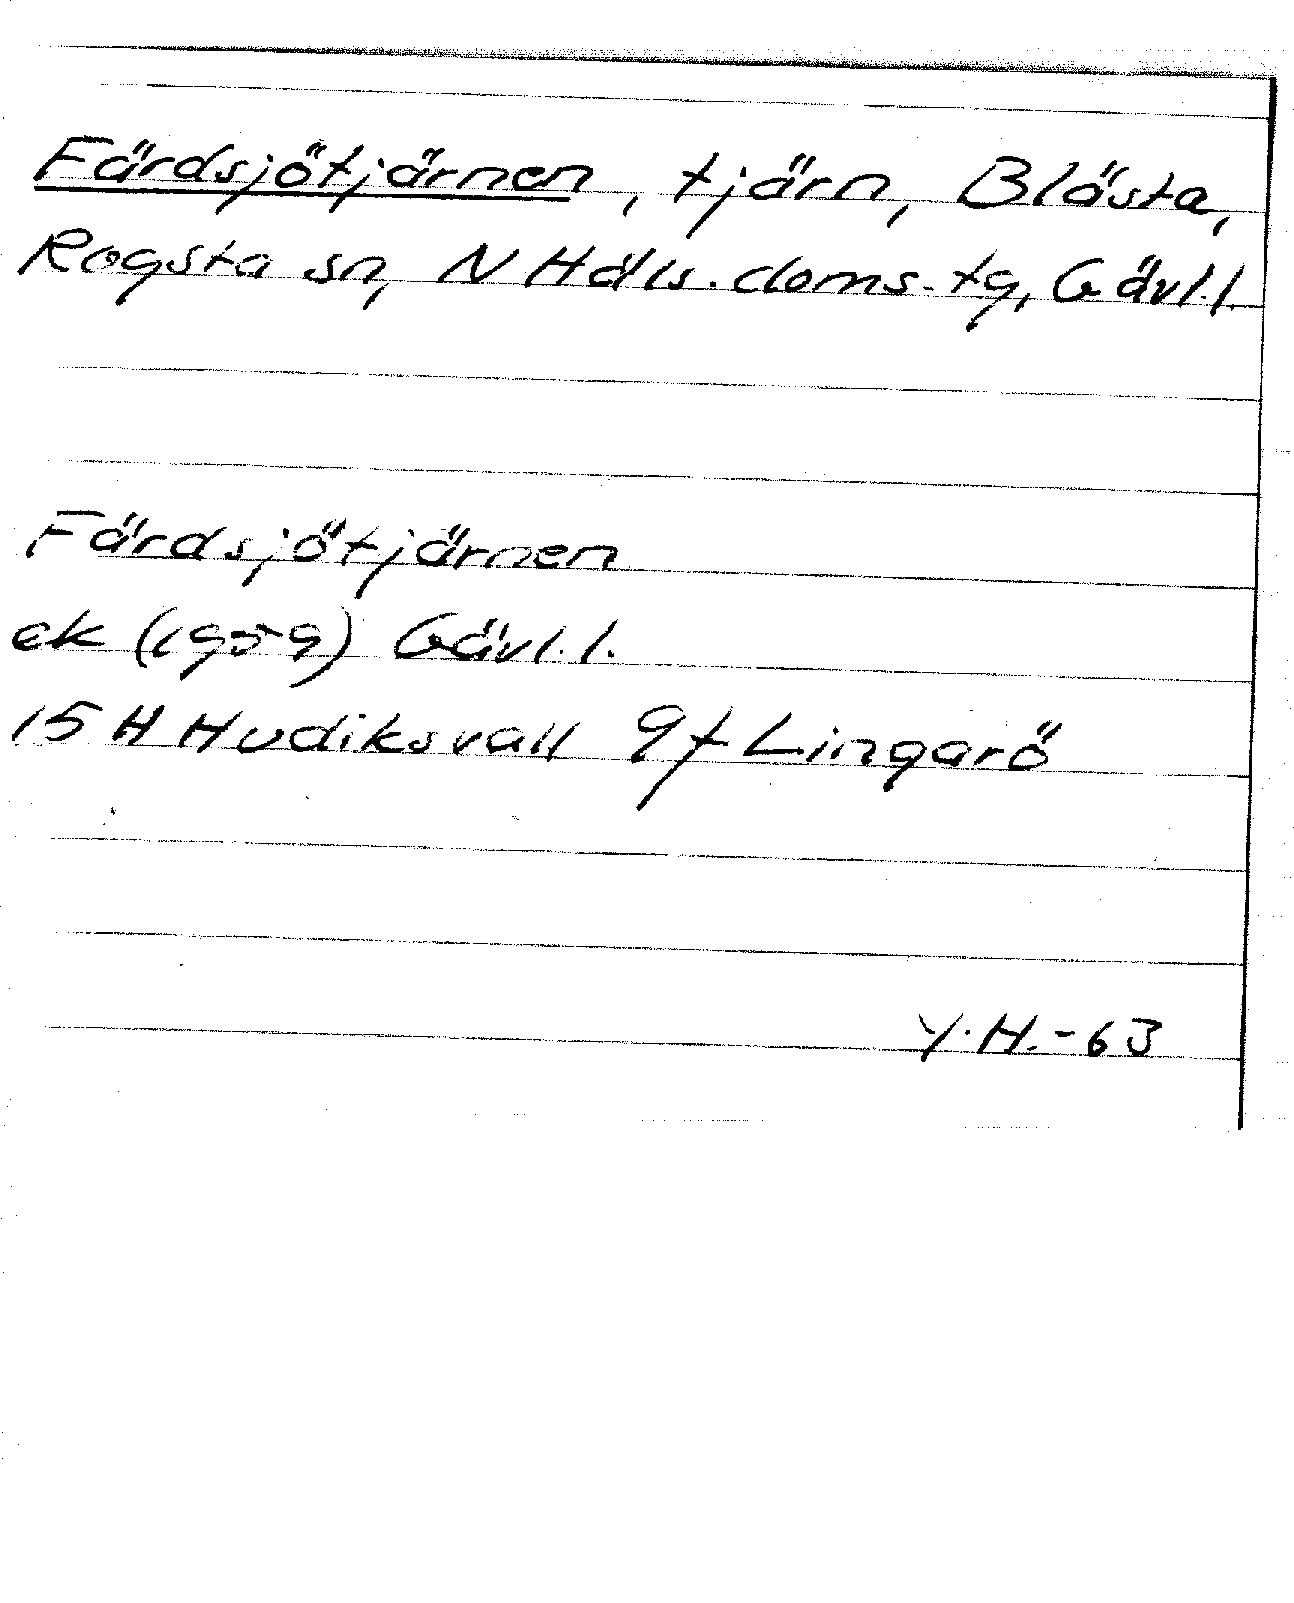 Färdsjötjärnen, tjärn, Blästa,
Rogsta sn, N Häls. doms. tg, Gävl.l.
Färdsjötjärnen
ek (1959) Gävl.l.
15 H Hudiksvall 9f Lingarö
Y.H.-63